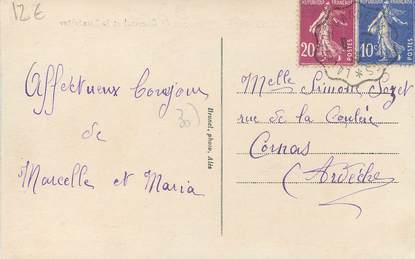 12€
Affectueux bonjour
30
de
Marcelle et Maria
Brunel, photo, Alès
RÉPUBLIQUE FRANÇAISE
20c
POSTES
RÉPUBLIQUE FRANÇAISE
10c
POSTES
Melle Simone
rue de la Coulée
Cornas
(Ardèche)